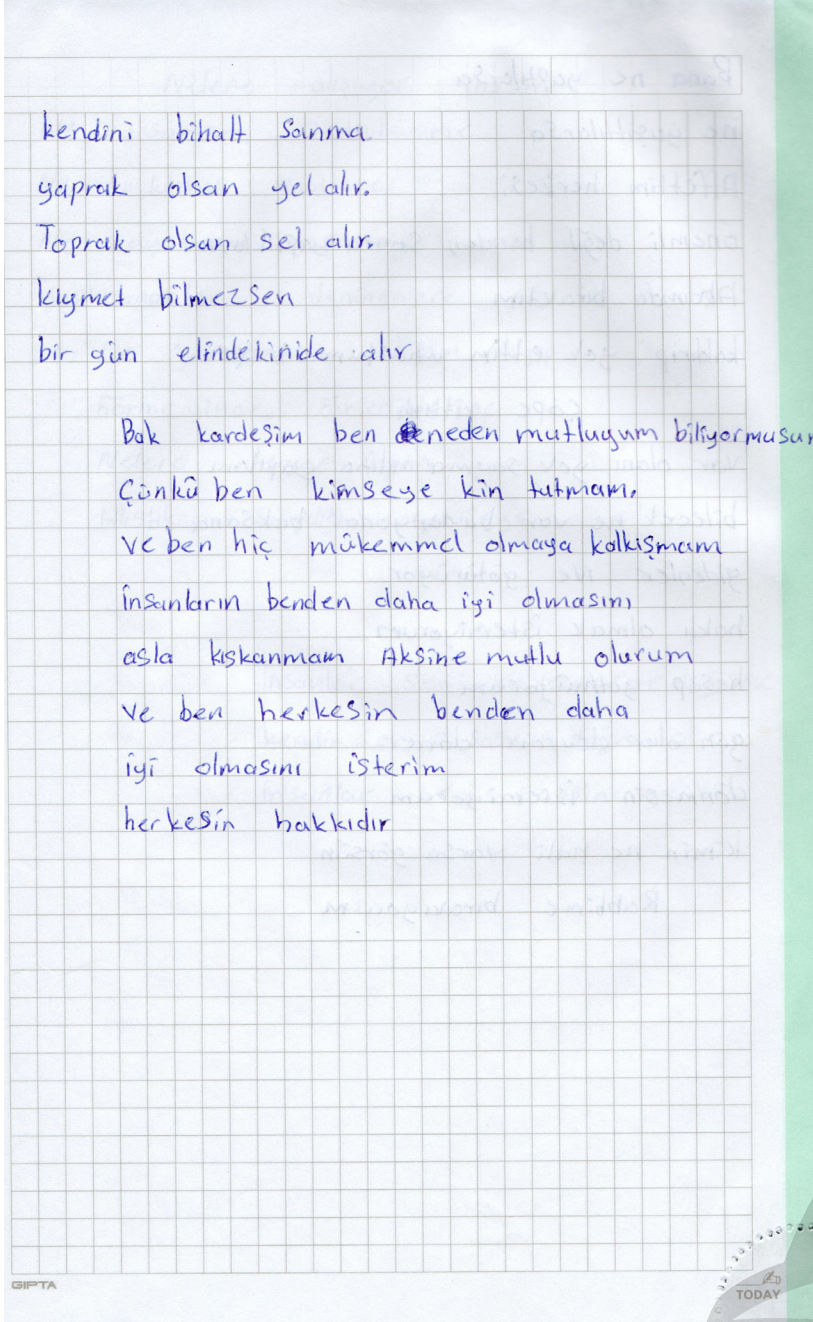 kendini bihalt sanma
yaprak olsan yel alır.
Toprak olsan sel alır.
kıymet bilmezsen
bir gün elindekinide alır
Bak kardeşim ben neden mutluyum biliyormusun
Çünkü ben kimseye kin tutmam.
ve ben hiç mükemmel olmaya kalkışmam
insanların benden daha iyi olmasını
asla kıskanmam Aksine mutlu olurum
ve ben herkesin benden daha
iyi olmasını isterim
herkesin hakkıdır
GIPTA
TODAY